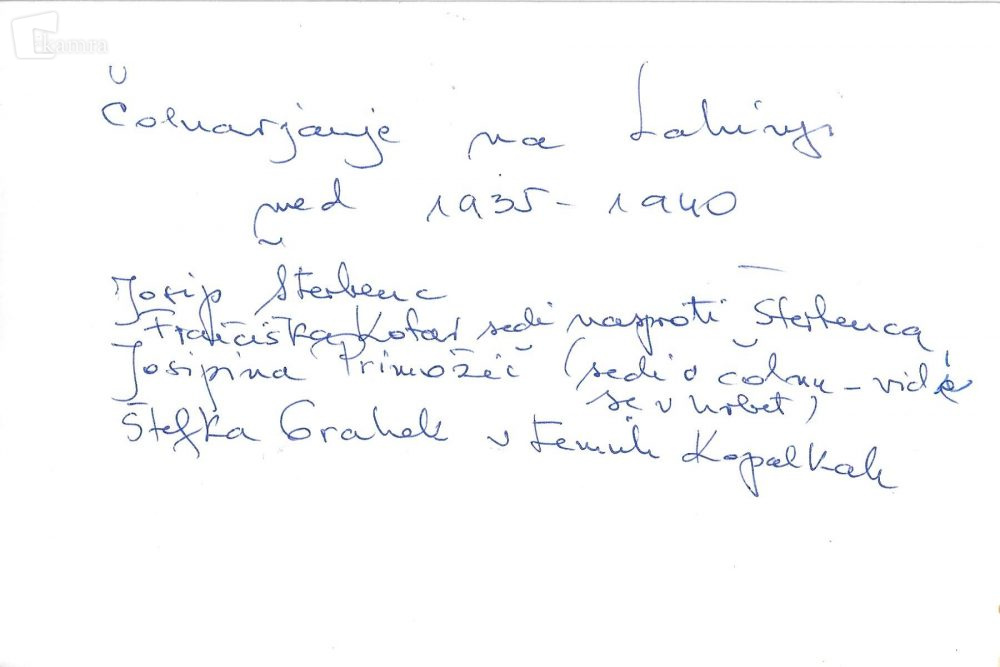 kamra
Čolnarjanje na Lahinji
med 1935-1940
Josip Šterbenc
Frančiška Kotar sedi nasproti Šterbenca
Josipina Primožič (sedi v čolnu - vidi
se v hrbet)
Štefka Grahek v temnih kopalkah